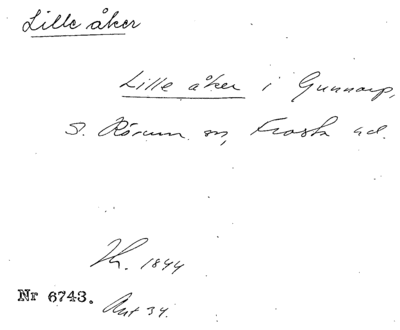 Lille åker
Lille åker i Gunnarp,
S. Rörum sn, Frosta hd.
Kr. 1844
Nr 6743. Ant 34.